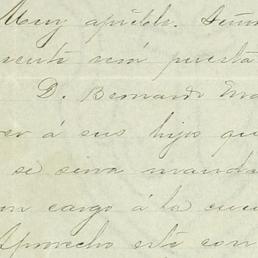 Muy apréble. Señor
verá puesta
D. Bernardo
á sus hijos que
se sirva manda
un cargo á la
Aprovecho esta con